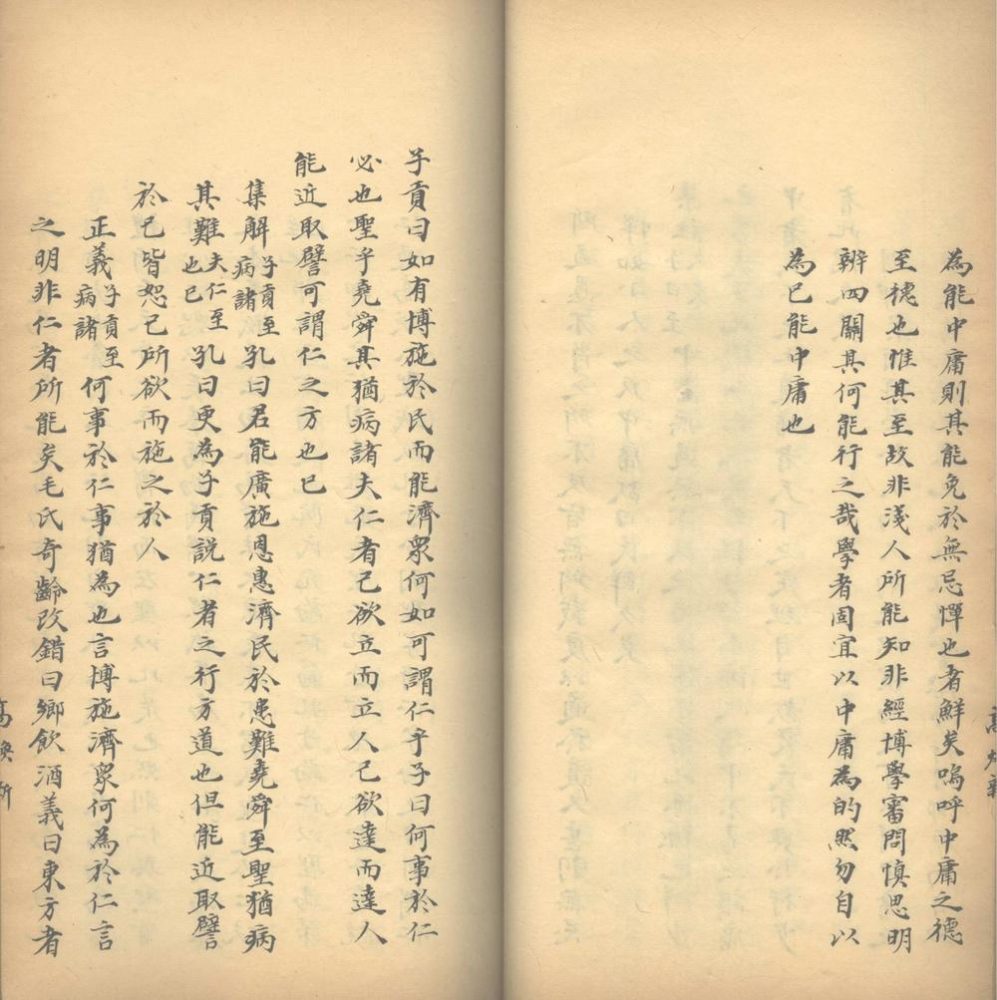 為能中庸則其能免於無忌憚也者鮮矣嗚呼中庸之德
至德也惟其至故非淺人所能知非經博學審問慎思明
辨四關其何能行之哉學者固宜以中庸為的然勿自以
為已能中庸也
子貢曰如有博施於民而能濟眾何如可謂仁乎子曰何事於仁
必也聖乎堯舜其猶病諸夫仁者己欲立而立人己欲達而達人
能近取譬可謂仁之方也已
集解子貢至病諸孔曰君能廣施恩惠濟民於患難堯舜至聖猶病
其難夫仁至也已孔曰更為子貢説仁者之行方道也但能近取譬
於己皆恕己所欲而施之於人
正義子貢至病諸何事於仁事猶為也言博施濟眾何為於仁言
之明非仁者所能矣毛氏奇齡改錯曰鄉飲酒義曰東方者